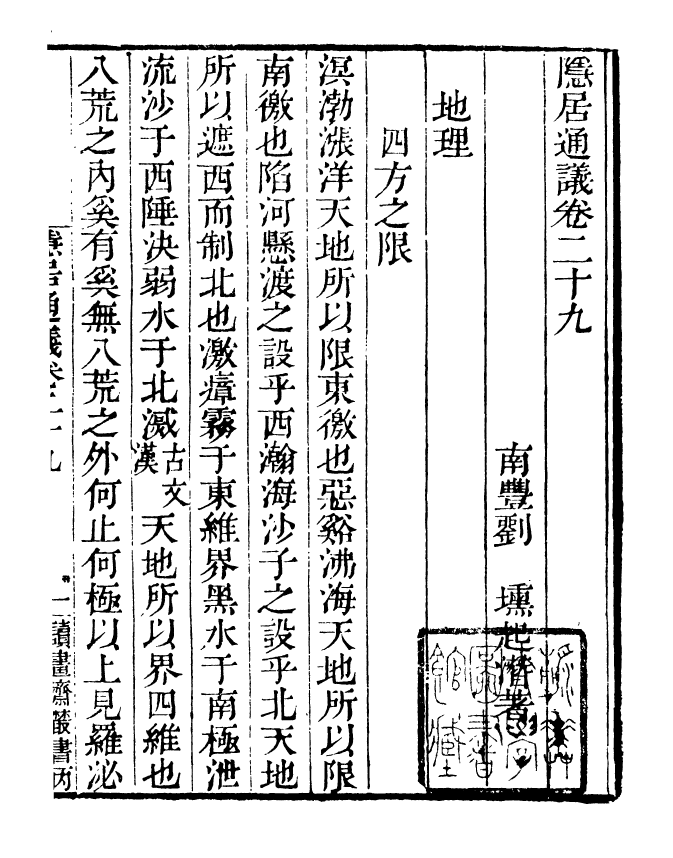 隱居通議卷二十九
南豐劉　壎起潛著
地理
四方之限
溟渤漲洋天地所以限東徼也惡谿沸海天地所以限
南徼也陷河懸渡之設乎西瀚海沙子之設乎北天地
所以遮西而制北也激瘴霧于東維界黑水于南極泄
流沙于西陲決弱水于北滅古文漢天地所以界四維也
八荒之內奚有奚無八荒之外何止何極以上見羅泌
隱居通議卷二十九
一
讀畫齋叢書丙